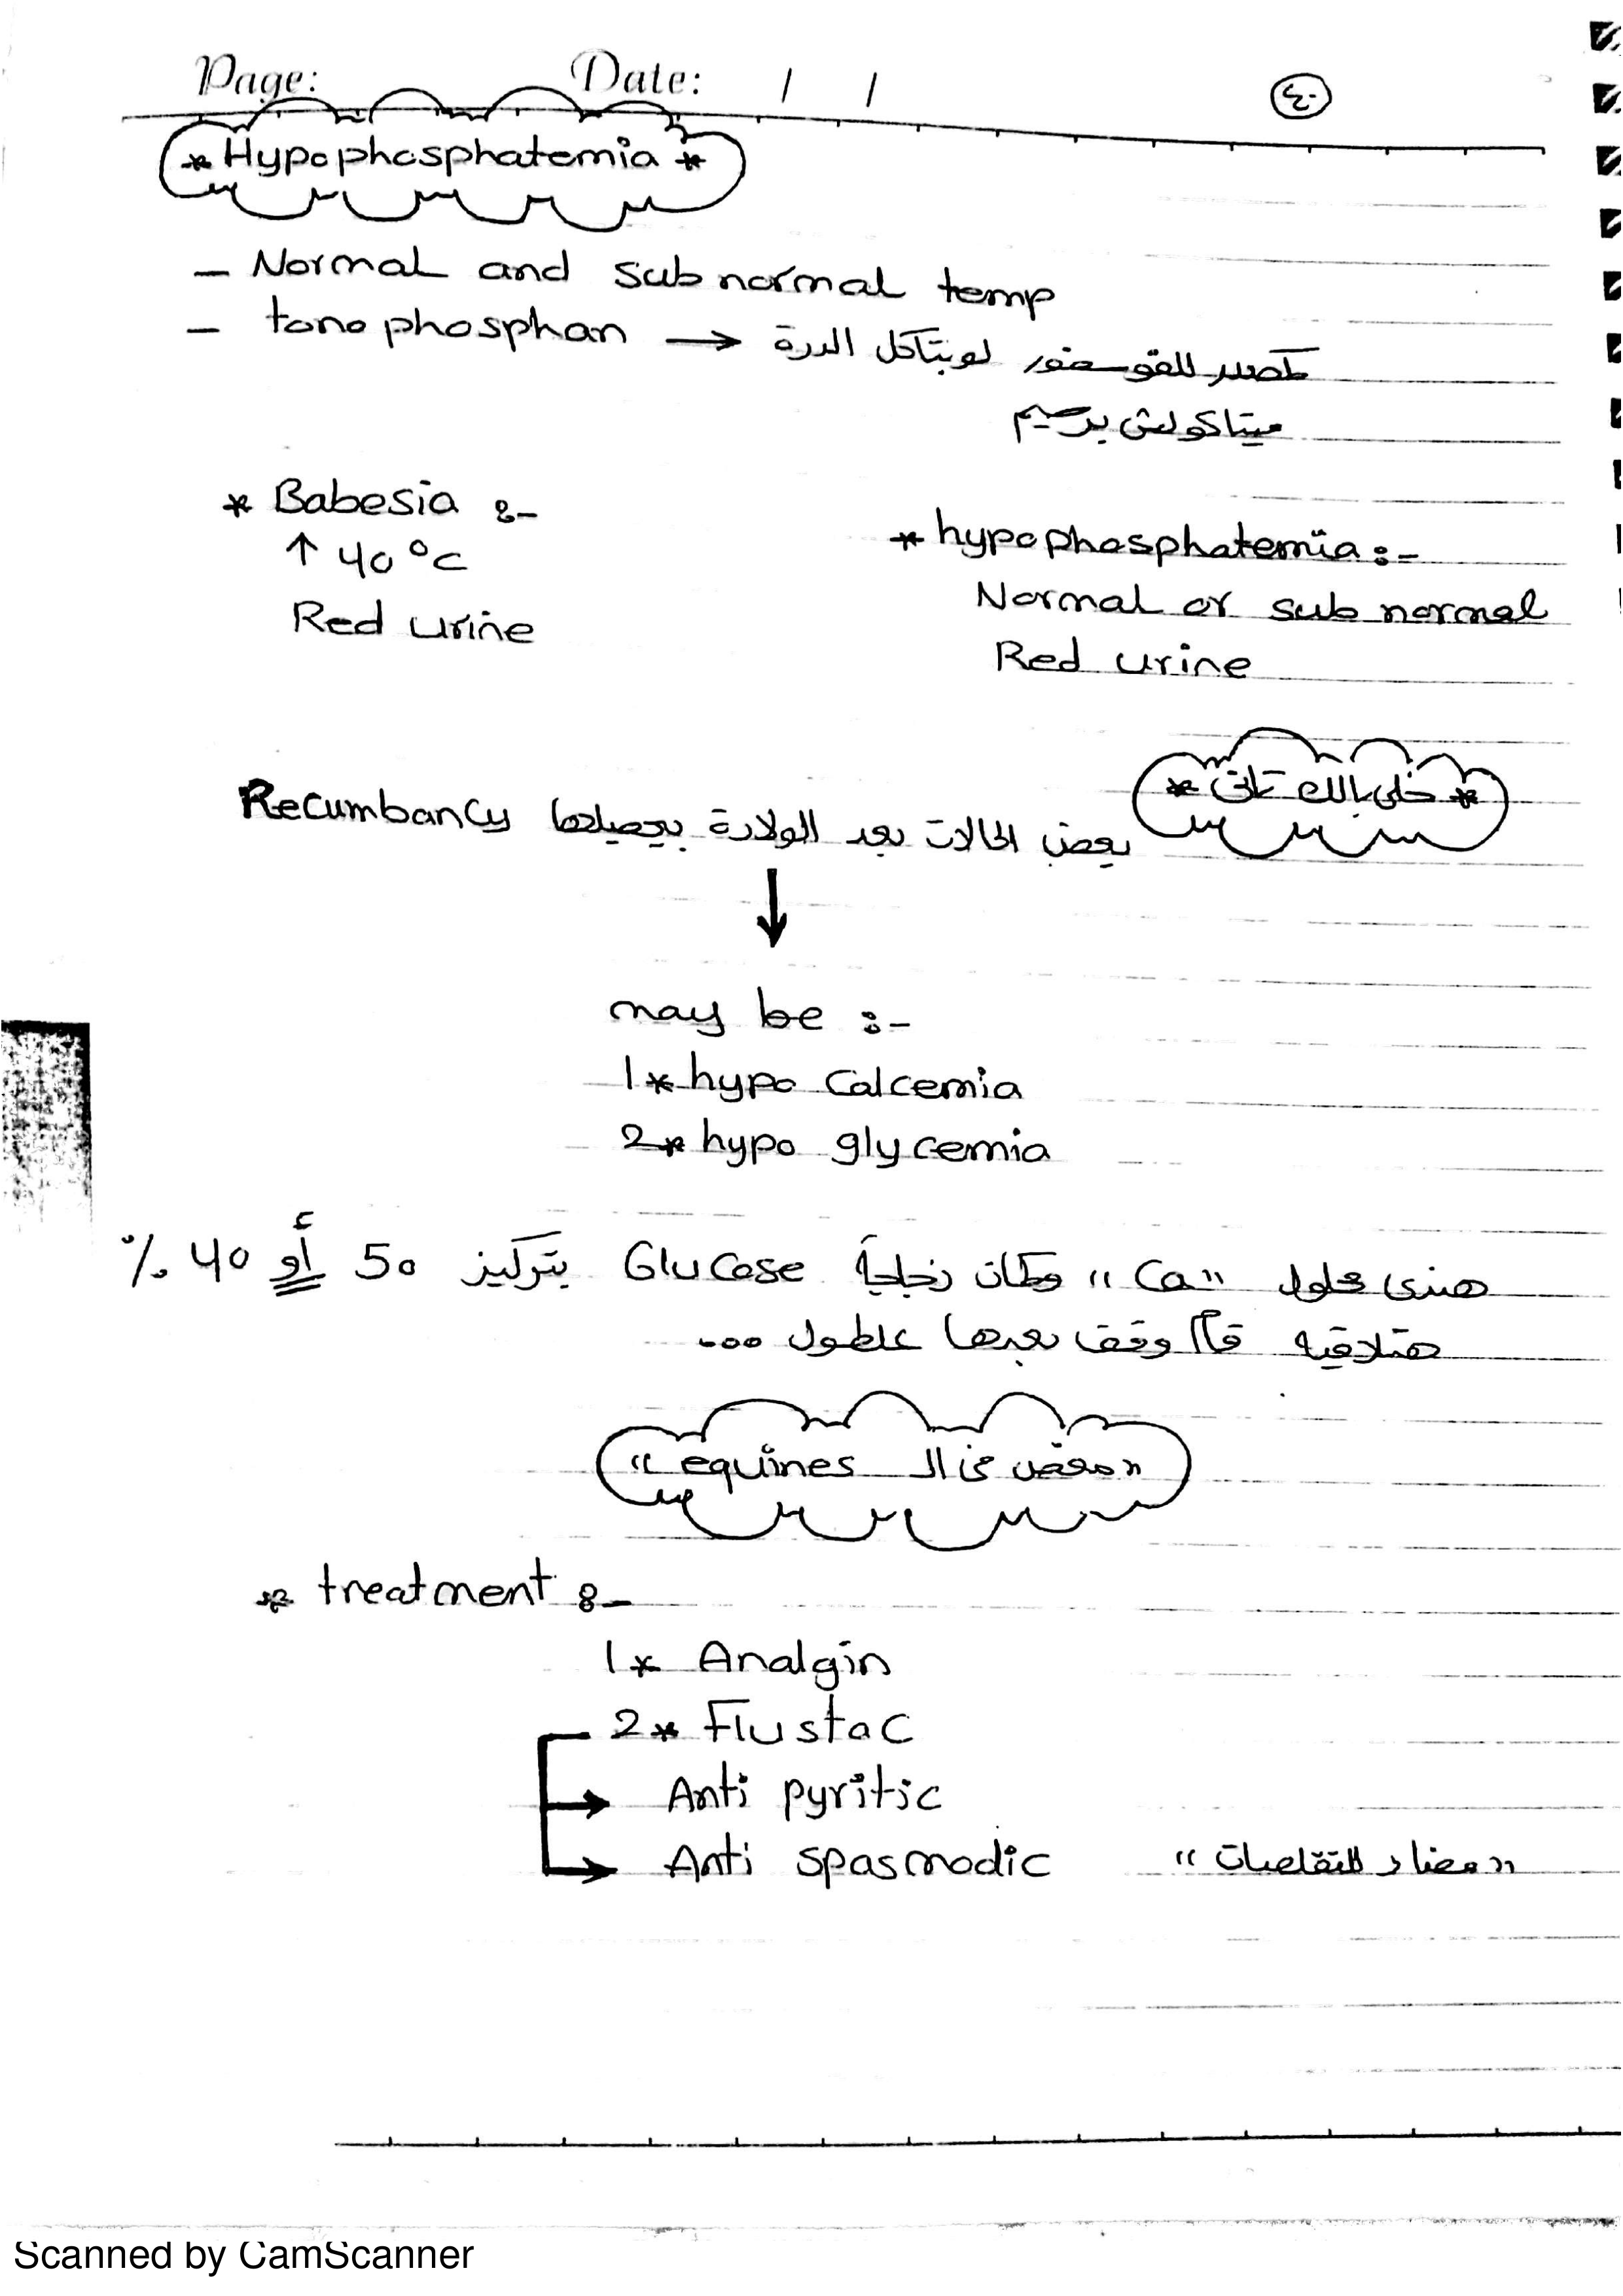 Page: Date: / /
٤٠
* Hypophosphatemia *
- Normal and sub normal temp
- tonophosphan → كمصدر للفوسفور لو بتاكل الدرة
ميتاكولش برسيم
* Babesia :-
↑ 40 °C
Red urine
* hypophosphatemia :-
Normal or sub normal
Red urine
* خلى بالك تانى *
بعض الحالات بعد الولادة بيحصلها Recumbancy
↓
may be :-
1* hypo Calcemia
2* hypo glycemia
هندى محلول "Ca" وكمان زجاجة Glucose بتركيز 50 أو 40 %
هتلاقيه قام وقف بعدها علطول ...
"مغص فى الـ equines"
* treatment :-
1* Analgin
2* Flustac
→ Anti pyritic
→ Anti spasmodic "مضاد للتقلصات"
Scanned by CamScanner